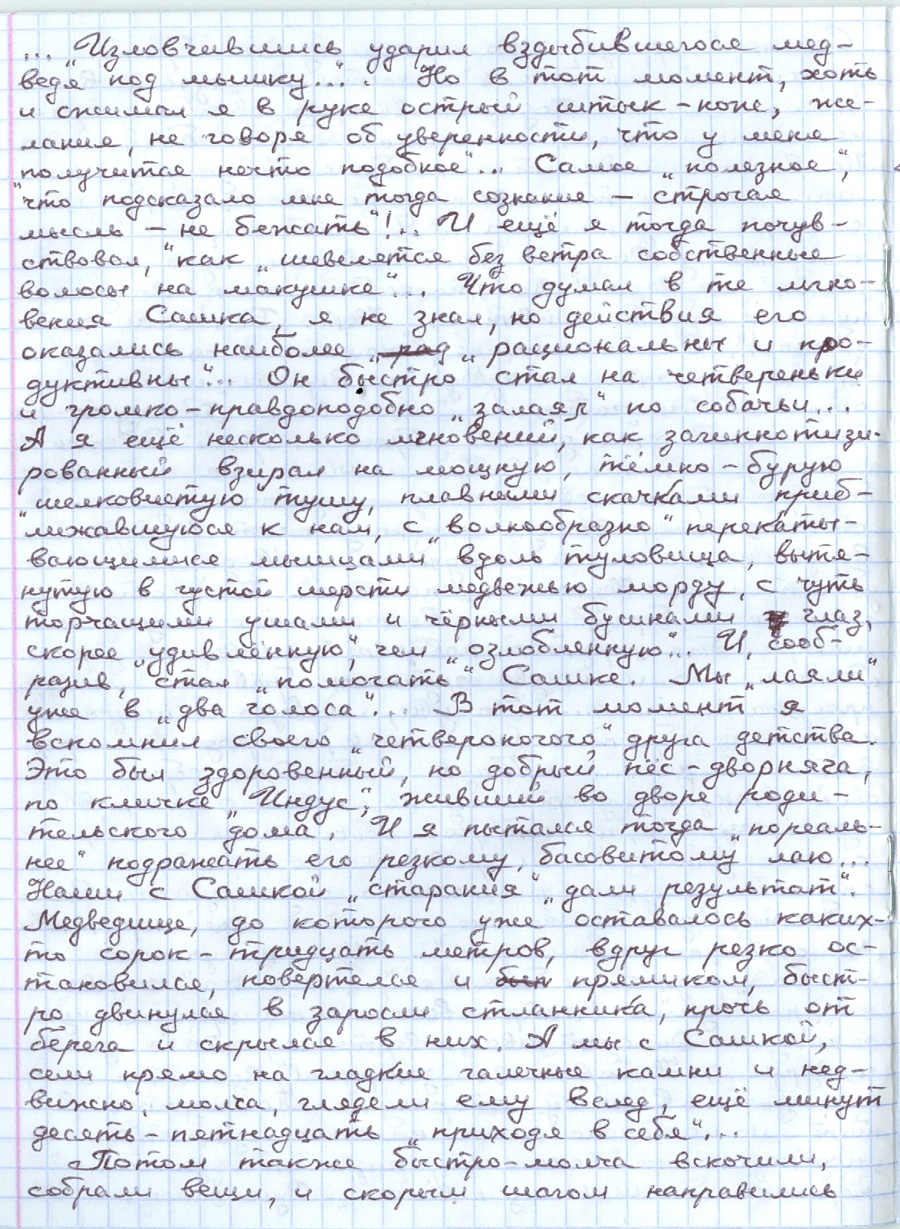 ... "Изловчившись ударил вздыбившегося мед-
ведя под мышку...". Но в тот момент, хоть
и сжимал я в руке острый штык-нож, же-
лания, не говоря об уверенности, что у меня
"получится нечто подобное"... Самое "полезное",
"что подсказало мне тогда сознание – строгая
мысль – не бежать"!.. И ещё я тогда почув-
ствовал, "как "шевелятся без ветра собственные
волосы на макушке"... Что думал в те мгно-
вения Сашка, я не знал, но действия его
оказались наиболее "рад "рациональны и про-
дуктивны"... Он быстро стал на четвереньки
и громко-правдоподобно "залаял" по собачьи...
А я ещё несколько мгновений, как загипнотизи-
рованный взирал на мощную, тёмно-бурую
"шелковистую" тушу, плавными скачками приб-
лижавшуюся к нам, с "волнообразно" перекаты-
вающимися мышцами" вдоль туловища, вытя-
нутую в густой шерсти медвежью морду, с чуть
торчащими ушами и чёрными бусинами глаз,
скорее "удивлённую", чем "озлобленную"... И, сооб-
разив, стал "помогать" Сашке. Мы "лаяли"
уже в "два голоса"... В тот момент я
вспомнил своего "четвероногого" друга детства.
Это был здоровенный, но добрый пёс-дворняга,
по кличке "Индус", живший во дворе роди-
тельского дома. И я пытался тогда "пореаль-
нее" подражать его резкому, басовитому лаю...
Наши с Сашкой "старания" "дали результат".
Медведище, до которого уже оставалось каких-
то сорок-тридцать метров, вдруг резко ос-
тановился, повертелся и был прямиком, быст-
ро двинулся в заросли стланника, прочь от
берега и скрылся в них. А мы с Сашкой,
сели прямо на гладкие галечные камни и нед-
вижно, молча, глядели ему вслед, ещё минут
десять-пятнадцать "приходя в себя"...
Потом также быстро-молча вскочили,
собрали вещи, и скорым шагом направились